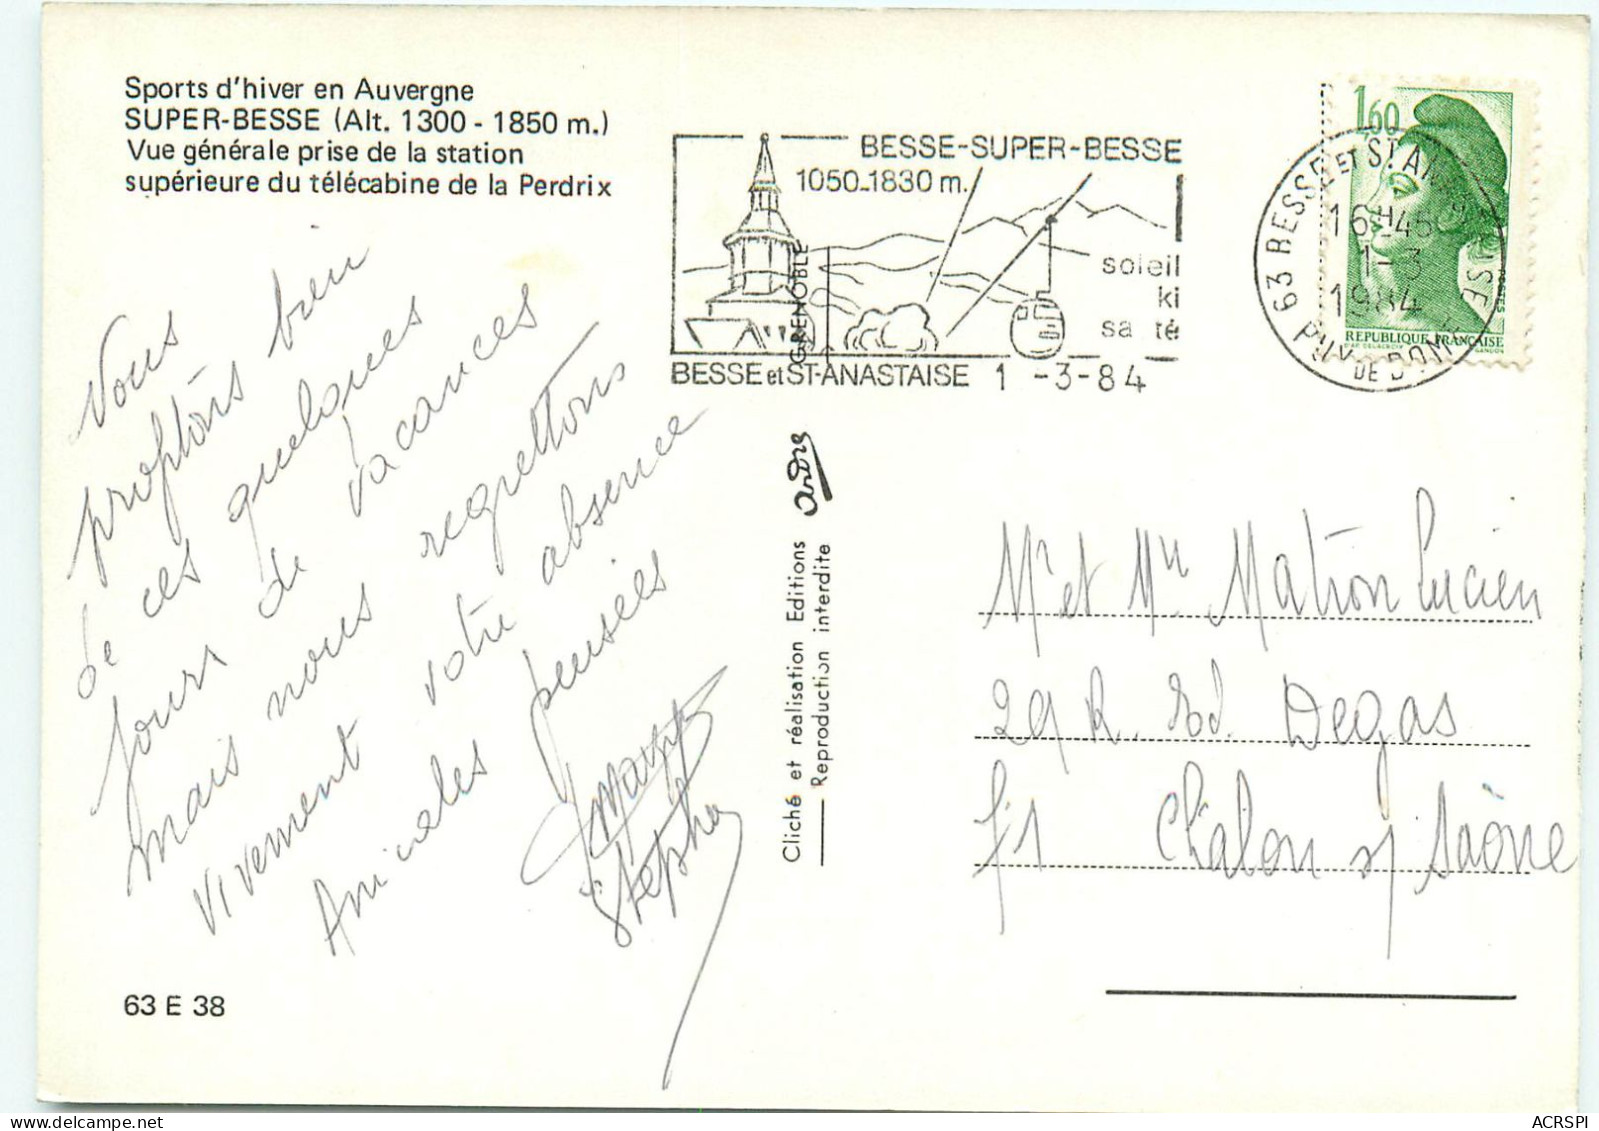 Sports d'hiver en Auvergne
SUPER-BESSE (Alt. 1300 - 1850 m.)
Vue générale prise de la station
supérieure du télécabine de la Perdrix
BESSE-SUPER-BESSE
1050-1830 m.
soleil
ki
sa té
GRENOBLE
BESSE et ST-ANASTAISE 1 -3-84
1,60
RÉPUBLIQUE FRANÇAISE
63 BESSE ET ST. ANASTAISE
16H45
1-3
1984
PUY DE DOME
Nous
profitons bien
de ces quelques
jours de vacances
mais nous regrettons
vivement votre absence
Amicales pensées
Stépha
Cliché et réalisation Editions André
Reproduction interdite
Mr et Mme Matron Lucien
29 R. Ed. Degas
71 Chalon s/ Saône
63 E 38
ACRSPI